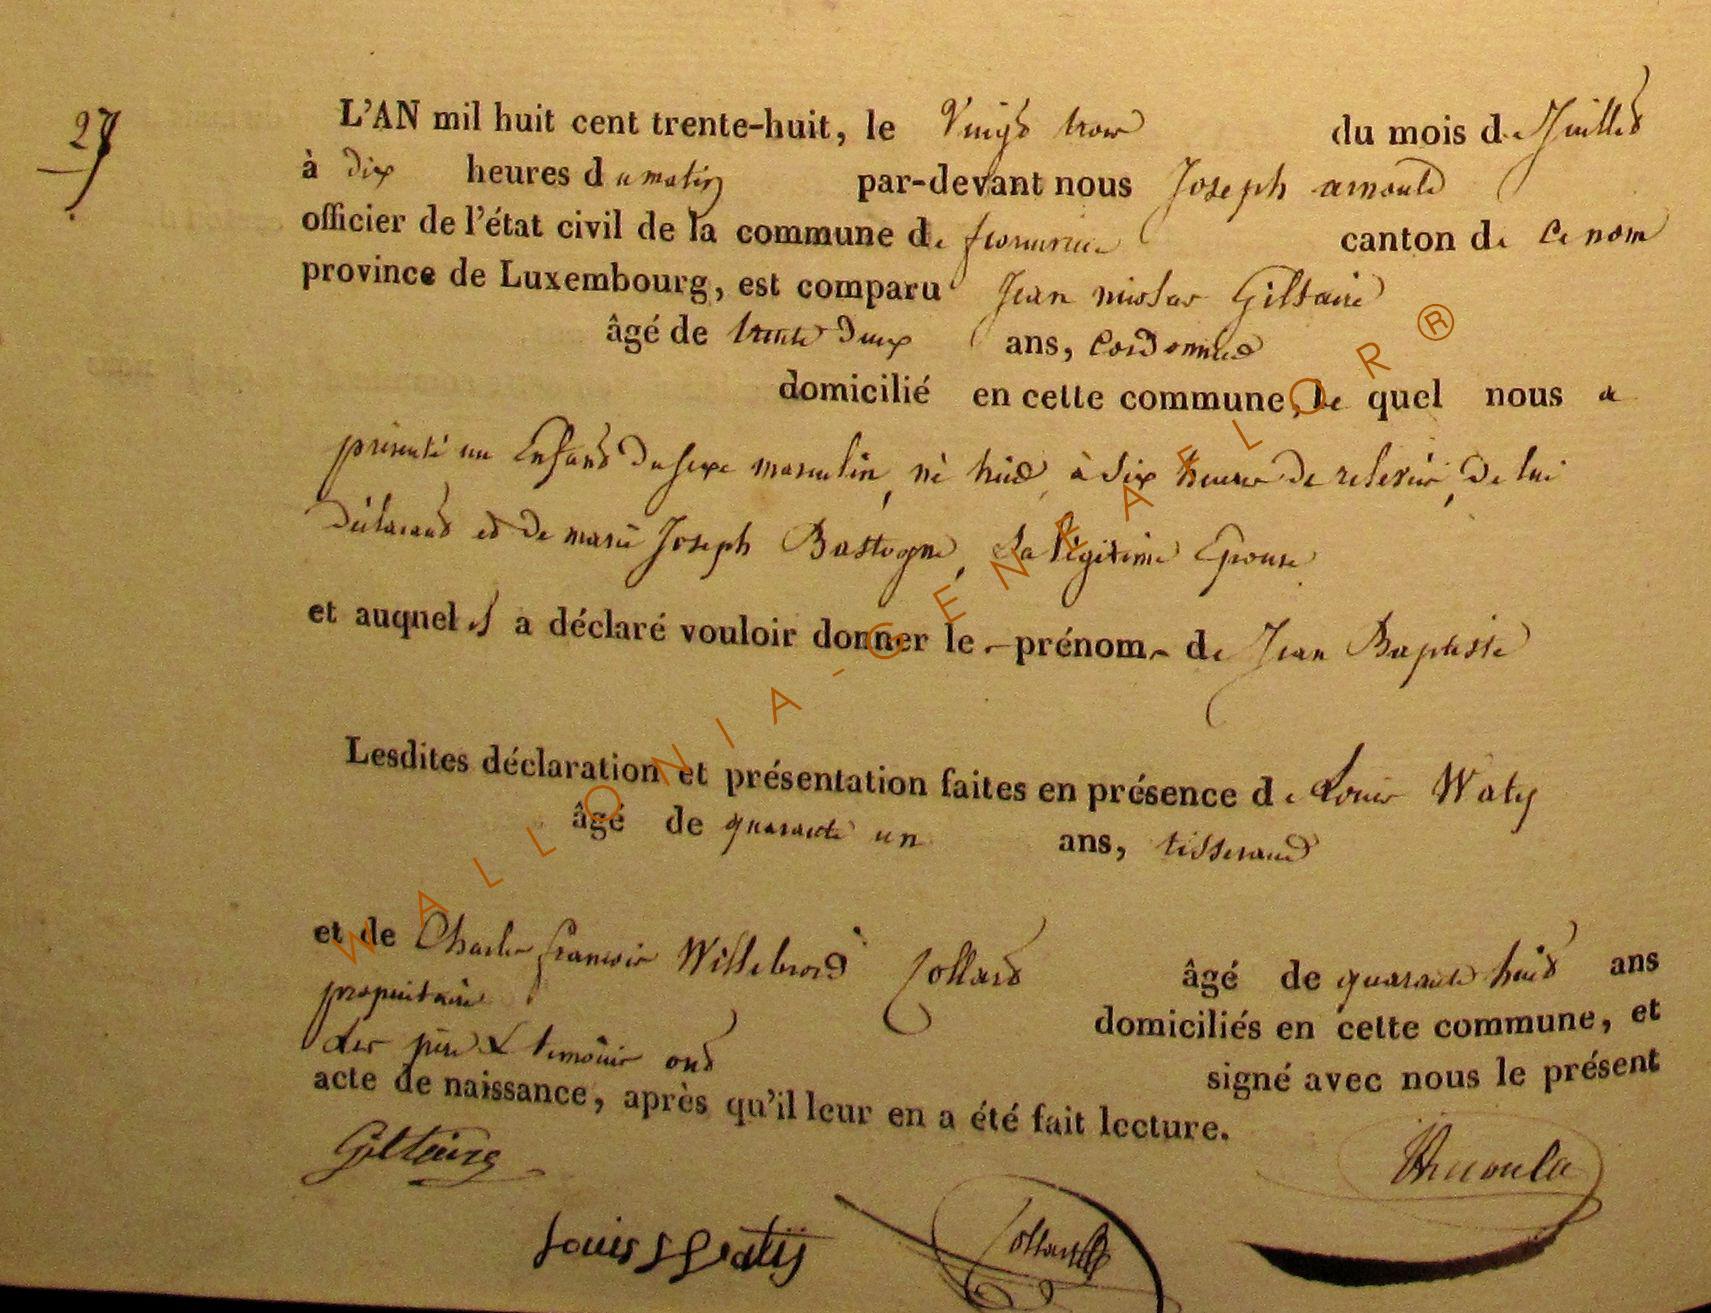 27
L'AN mil huit cent trente-huit, le Vingt trois du mois de Juillet
à dix heures du matin par-devant nous Joseph arnould
officier de l'état civil de la commune de canton de Ce nom
province de Luxembourg, est comparu Jean nicolas Giltaire
âgé de trente deux ans, Cordonnier
domicilié en cette commune, le quel nous a
présenté un Enfant du sexe masculin, né hier, à six heures de relevée, de lui
déclarant et de marie Joseph Bastogne, Sa légitime Epouse
et auquel il a déclaré vouloir donner le prénom de Jean Baptiste
Lesdites déclaration et présentation faites en présence de Louis Waty
âgé de quarante un ans, tisserand
et de Charles françois Willebrord Collard âgé de quarante huit ans
propriétaire domiciliés en cette commune, et
Les père & témoins ont signé avec nous le présent
acte de naissance, après qu'il leur en a été fait lecture.
Giltaire Arnould
Louis Watij Collard
WALLONIA-GENEAFLOR®